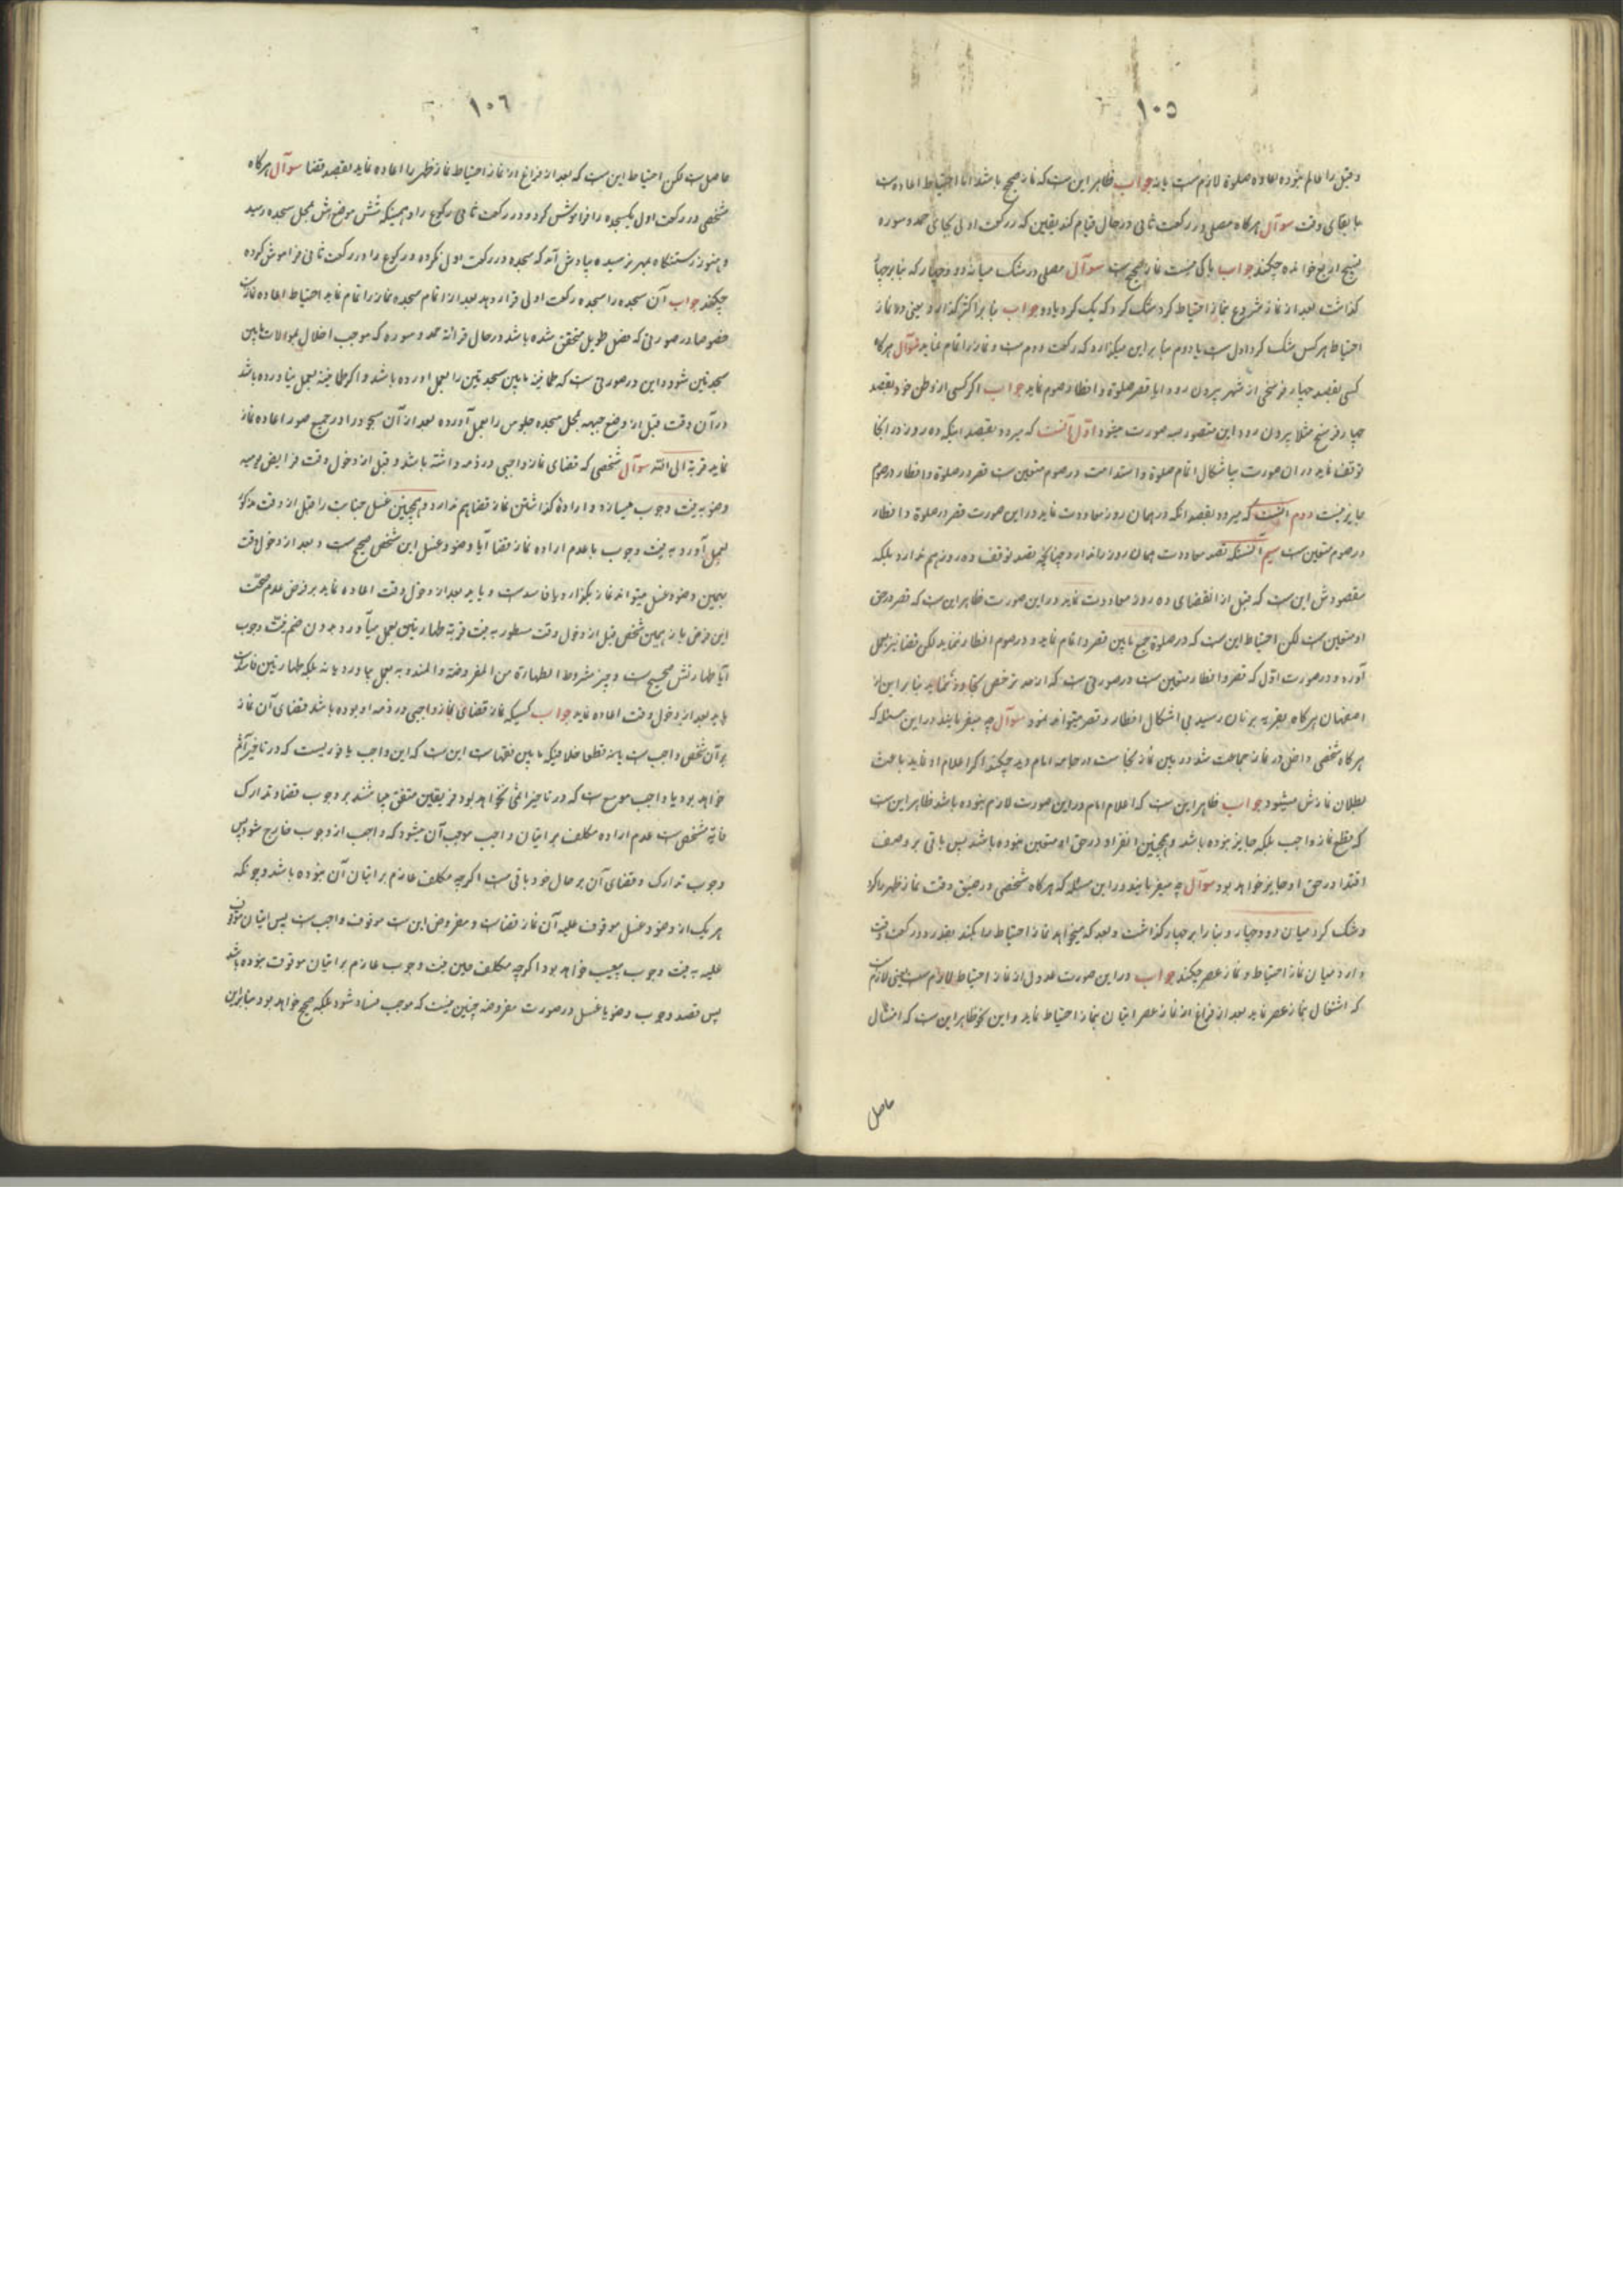 ١٠٥
و قبل را عالم نبوده اعاده صلوة لازمست یا نه جواب ظاهر این ست که نماز صحیح باشد اما احتیاط اعاده ست
با بقای وقت سوآل هرکاه مصلی در رکعت ثانی در حال قیام کند یقین که در رکعت اولی بجای حمد و سوره
تسبیح اربع خوانده چکند جواب باکی نیست نماز صحیح ست سوآل مصلی در شک میانه دو و چهار که بنا بر چهار
کذاشت بعد از نماز شروع بنماز احتیاط کرد شک کرد که یک کرد یا دو جواب بنا بر اکثر کذارد یعنی در نماز
احتیاط هر کس شک کرد اول ست یا دوم بنا بر این میکذارد که رکعت دوم ست و نماز را تمام نماید سوآل هرکاه
کسی بقصد چهار فرسخی از شهر بیرون رود ایا قصر صلوة و افطار صوم نماید جواب اکر کسی از وطن خود بقصد
چهار فرسخ مثلا بیرون رود این متصور بسه صورت میشود اول آنست که میرود بقصد اینکه ده روز در آنجا
توقف نماید در ان صورت بی اشکال اتمام صلوة و استدامت در صوم متعین ست قصر در صلوة و افطار در صوم
جایز نیست دوم آنست که میرود بقصد انکه در همان روز معاودت نماید در این صورت قصر در صلوة و افطار
در صوم متعین ست سیم آنستکه قصد معاودت همان روز را ندارد چنانچه قصد توقف ده روز هم ندارد بلکه
مقصودش این ست که قبل از انقضای ده روز معاودت نماید در این صورت ظاهر این ست که قصر در حق
او متعین ست لکن احتیاط این ست که در صلوة جمع مابین قصر و اتمام نماید و در صوم افطار ننماید لکن قضا نیز بعمل
آورد و در صورت اول که قصر و افطار متعین ست در صورتی ست که از حد ترخص تجاوز نماید بنا بر این از
اصفهان هرکاه بقریه برتان رسید بی اشکال افطار و قصر میتواند نمود سوآل چه میفرمایند در این مسئله که
هرکاه شخصی داخل در نماز جماعت شد در بین نماز نجاست در جامه امام دید چکند اکر اعلام او نماید باعث
بطلان نمازش میشود جواب ظاهر این ست که اعلام امام در این صورت لازم نبوده باشد ظاهر این ست
که قطع نماز واجب بلکه جایز نبوده باشد و همچنین انفراد در حق او متعین نبوده باشد پس باقی بر وصف
اقتدا در حق او جایز خواهد بود سوآل چه میفرمایند در این مسئله که هرکاه شخصی در ضیق وقت نماز ظهر را کرد
و شک کرد میان دو و چهار و بنا را بر چهار کذاشت و بعد که میخواهد نماز احتیاط را بکند بقدر دو رکعت وقت
دارد میان نماز احتیاط و نماز عصر چکند جواب در این صورت عدول از نماز احتیاط لازم ست یعنی لازم ست
که اشتغال بنماز عصر نماید بعد از فراغ از نماز عصر اتیان بنماز احتیاط نماید و این نحو ظاهر این ست که امتثال
حاصل
١٠٦
حاصل ست لکن احتیاط این ست که بعد از فراغ از نماز احتیاط نماز ظهر را اعاده نماید بقصد قضا سوآل هرکاه
شخصی در رکعت اول یکسجده را فراموش کرد و در رکعت ثانی رکوع را و همینکه شش موضعش بمحل سجده رسید
و هنوز رستنکاه بمهر نرسیده بیادش آمد که سجده در رکعت اولی نکرده و رکوع را در رکعت ثانی فراموش کرده
چکند جواب آن سجده را سجده رکعت اولی قرار دهد بعد از اتمام سجده نماز را تمام نماید احتیاط اعاده نماز ست
خصوصا در صورتی که فصل طویل متحقق شده باشد در حال قرائة حمد و سوره که موجب اخلال بموالات مابین
سجدتین شود و این در صورتی ست که طمانینه مابین سجدتین را بعمل اورده باشد و اکر طمانینه بعمل نیاورده باشد
در آن وقت قبل از وضع جبهه بمحل سجده جلوس را بعمل آورده بعد از آن سجود را و در جمیع صور اعاده نماز
نماید قربة الی الله سوآل شخصی که قضای نماز واجبی در ذمه داشته باشد و قبل از دخول وقت فرایض یومیه
وضو به نیت وجوب میسازد و ارادهٔ کذاشتن نماز قضا هم ندارد و همچنین غسل جنابت را قبل از وقت مذکور
بعمل آورد به نیت وجوب با عدم اراده نماز قضا آیا وضو و غسل این شخص صحیح ست و بعد از دخول وقت
بهمین وضو و غسل میتواند نماز بکذارد یا فاسد ست و باید بعد از دخول وقت اعاده نماید بر فرض عدم صحت
این فرض باز همین شخص قبل از دخول وقت مسطور به نیت قربة طهارتین بعمل میآورد بدون ضم نیت وجوب
آیا طهارتش صحیح ست و چیز مشروط الطهارة من المفروضة و المندوبه بعمل بیاورد یا نه بلکه طهارتین فاسد ست
باید بعد از دخول وقت اعاده نماید جواب کسیکه نماز قضای نماز واجبی در ذمه او بوده باشد قضای آن نماز
بر آن شخص واجب ست یا نه قطعا خلافیکه مابین فقهاست این ست که این واجب یا فوریست که در تاخیر آثم
خواهد بود یا واجب موسع ست که در تاخیر اثمی نخواهد بود فریقین متفق میباشند بر وجوب قضا و تدارک
غایة مشخص ست عدم اراده مکلف بر اتیان واجب موجب آن میشود که واجب از وجوب خارج شود پس
وجوب تدارک و قضای آن بر حال خود باقی ست اکرچه مکلف عازم بر اتیان آن نبوده باشد و چونکه
هر یک از وضو و غسل موقوف علیه آن نماز قضاست و مفروض این ست موقوف واجب ست پس اتیان موقوف
علیه به نیت وجوب بعیب خواهد بود اکرچه مکلف حین نیت وجوب عازم بر اتیان موقوف نبوده باشد
پس قصد وجوب وضو یا غسل در صورت مفروضه چنین نیست که موجب فساد شود بلکه صحیح خواهد بود بنابراین